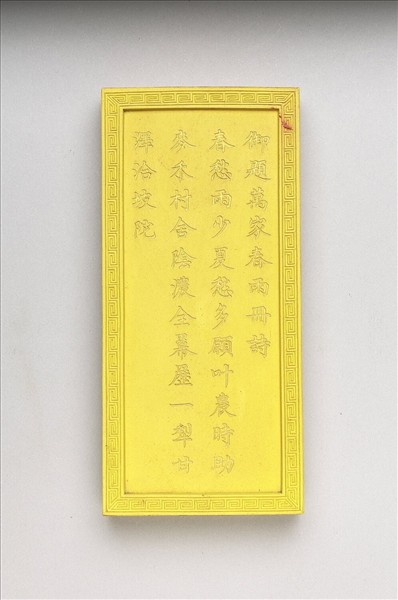 御題萬家春雨冊詩
春愁雨少夏愁多願叶農時助
麥禾村合陰濃全羃歷一犂甘
澤洽坡陀